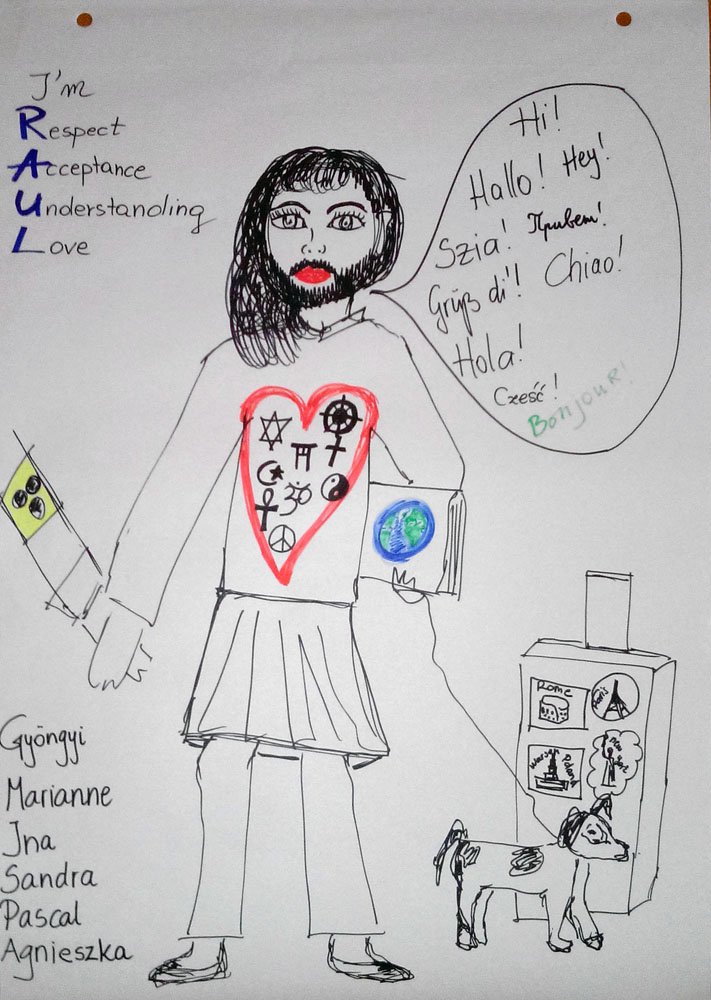 I'm
Respect
Acceptance
Understanding
Love
Hi!
Hallo! Hey!
Szia! Привет!
Grüß di'! Chiao!
Hola!
Cześć!
Bonjour!
Rome
Paris
Warsaw Poland
New York
Gyöngyi
Marianne
Ina
Sandra
Pascal
Agnieszka